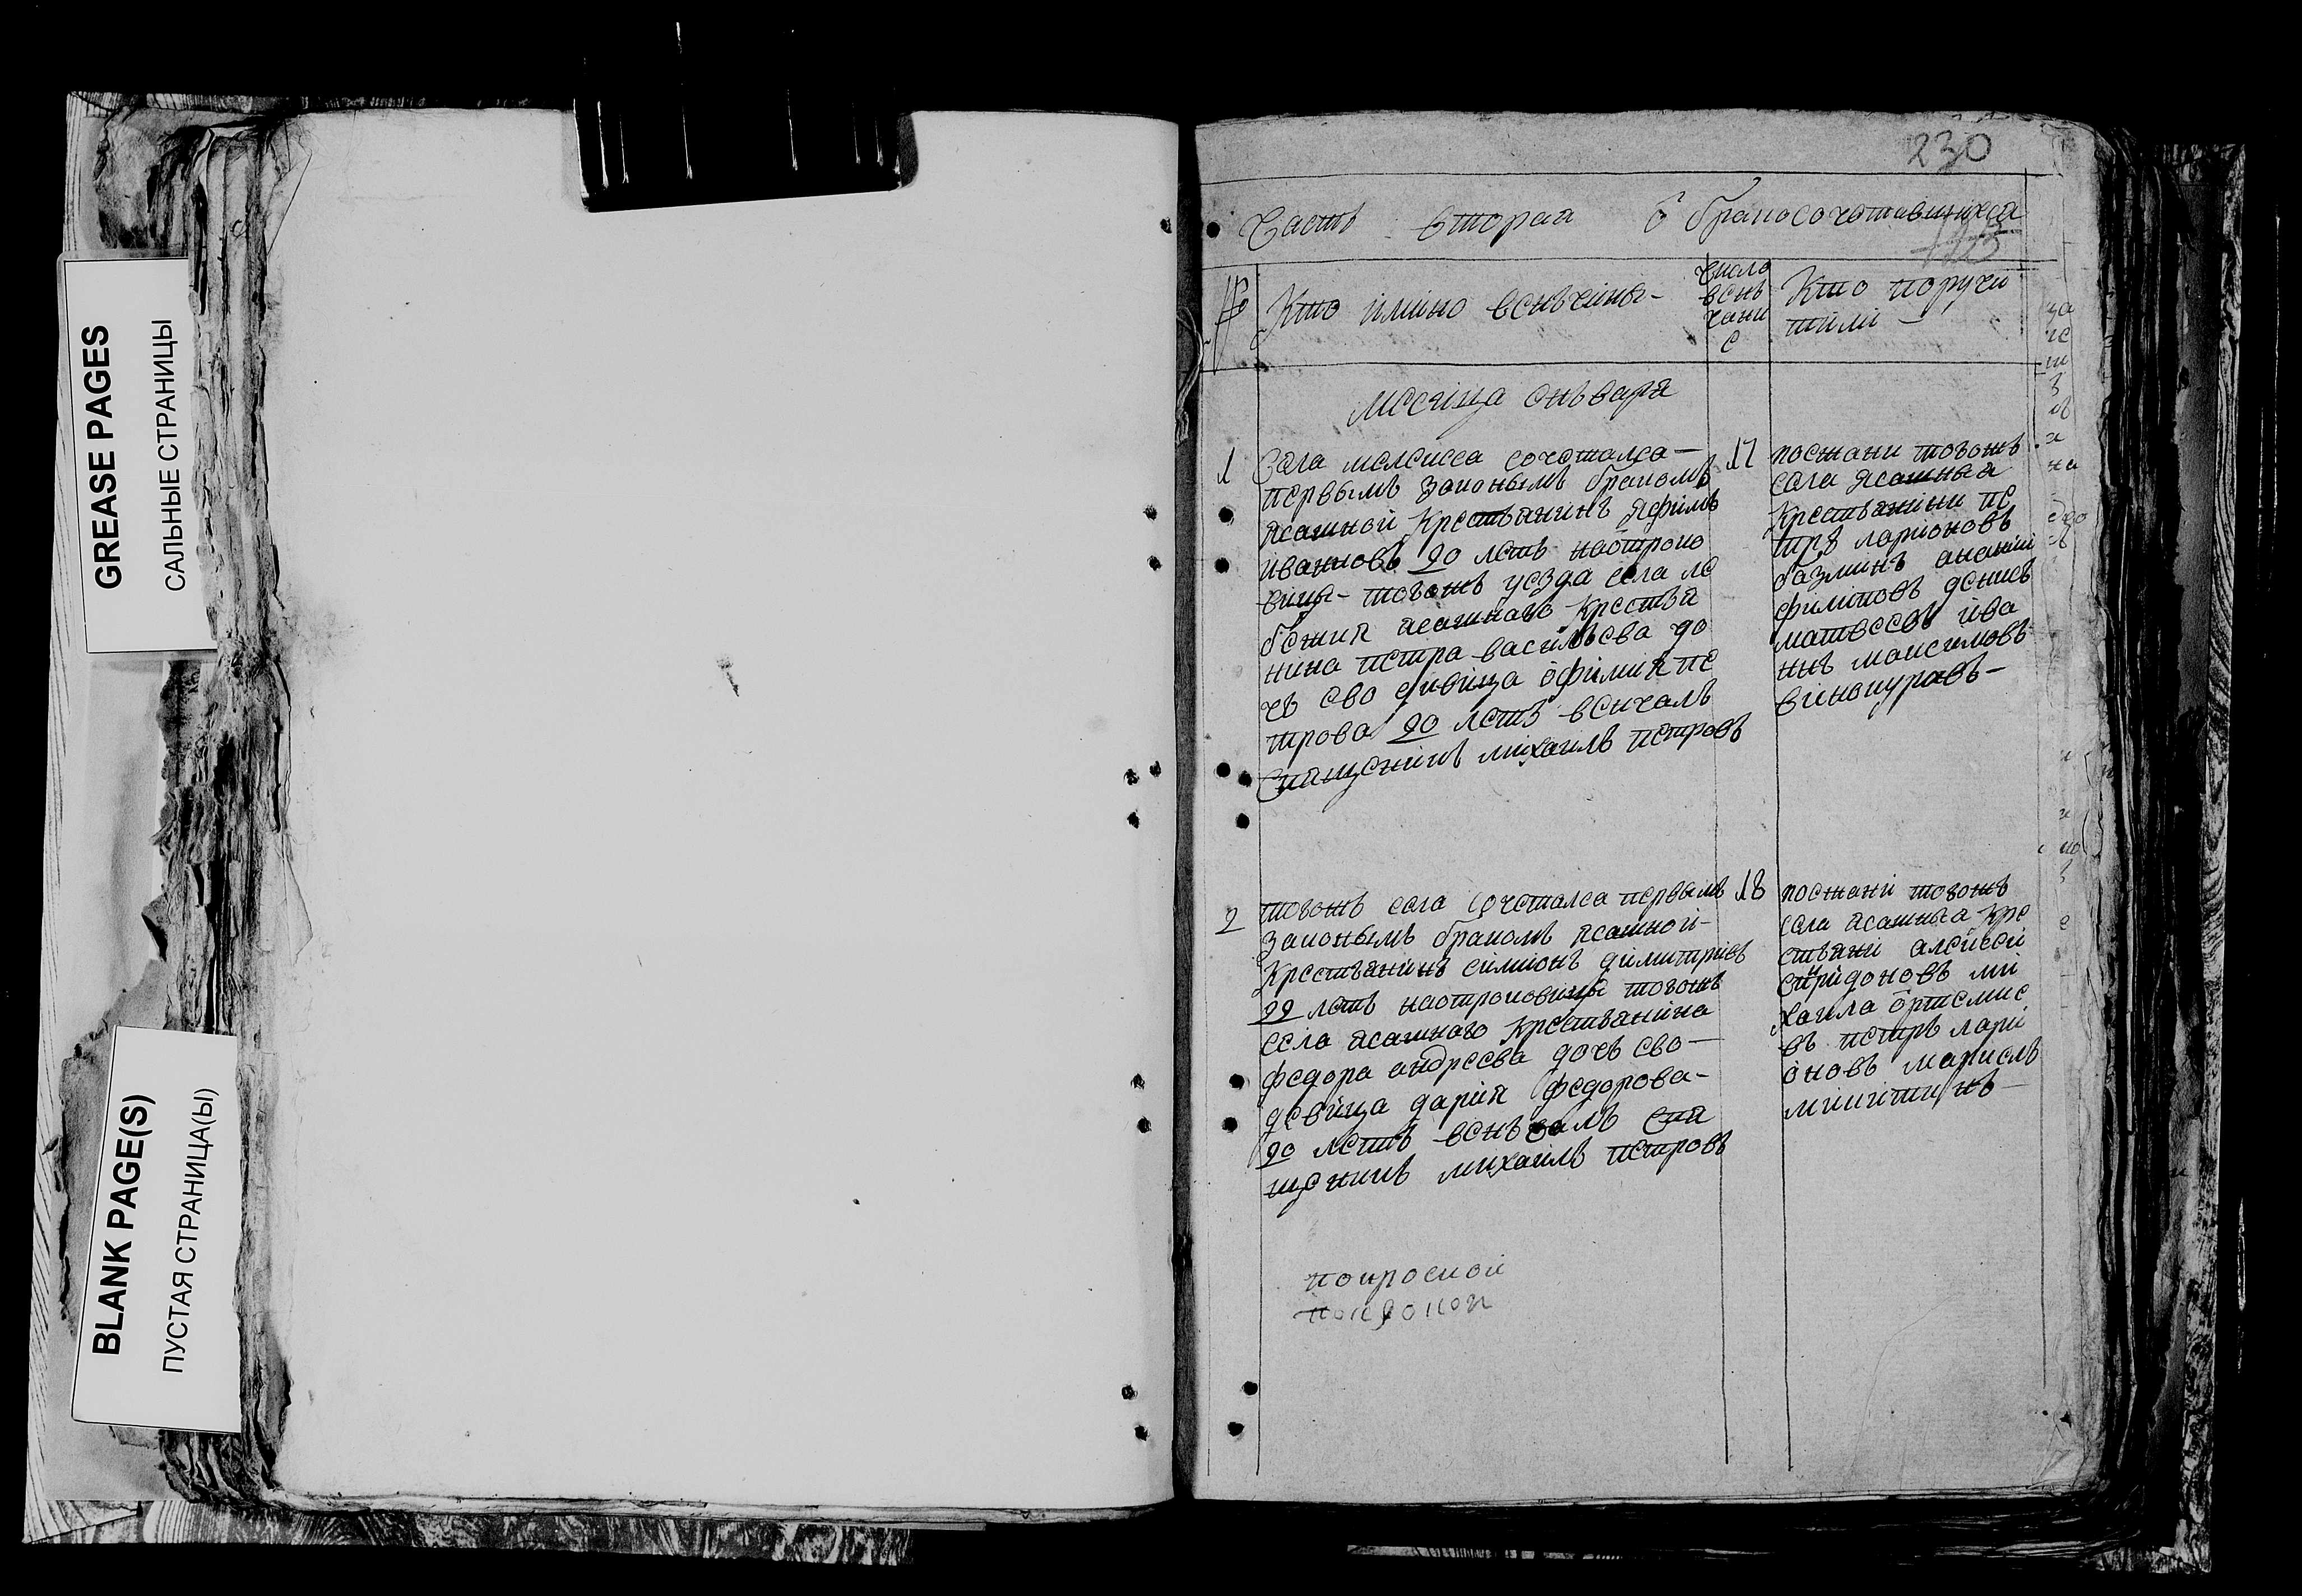 GREASE PAGES
САЛЬНЫЕ СТРАНИЦЫ
BLANK PAGE(S)
ПУСТАЯ СТРАНИЦА(Ы)
230
Часть вторая о бракосочетавшихса
№
Кто имено венчаны
число
венъ
чани
е
Кто поручи
тили
месяца енъваря
1
Села сочеталса
первымъ законымъ бракомъ
ясашной крестьянинъ Яфимъ
ивановъ 20 летъ наотроко
вицы тогожъ уезда села ле
бежия ясашнаго крестья
нина петра васильева до
чь ево девица офимия пе
трова 20 летъ венчалъ
священикъ михаилъ петровъ
17
поежани тогожъ
села ясашныа
крестьянини пе
тръ ларионовъ
ананий
филиповъ денисъ
матвеевъ ива
нъ максимовъ
винокуравъ
2
тогожъ села сочеталса первымъ
законымъ бракомъ ясашной
крестьянинъ симионъ димитриевъ
22 летъ наотроковицы тогожъ
села ясашнаго крестьянина
федора андреева дочь ево
девица дария федорова
20 летъ венъчалъ свя
щеникъ михаилъ петровъ
18
поежани тогожъ
села ясашныа кре
стьяни алексей
спиридоновъ ми
хаила ортемие
въ петръ лари
оновъ
никитинъ
покроской